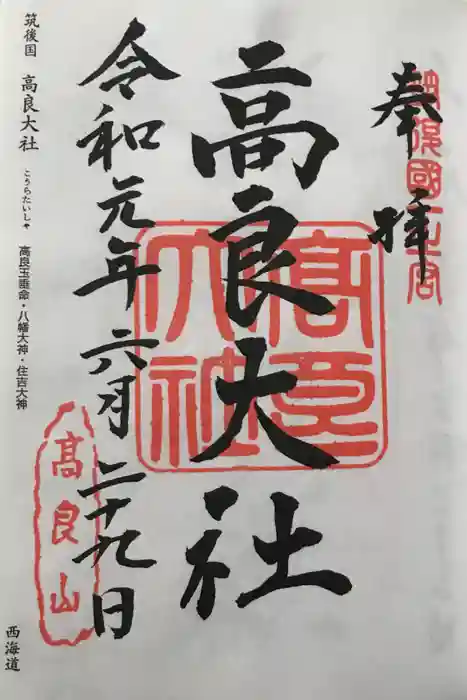 奉拝
筑後國一之宮
高良大社
高良大社
令和元年六月二十九日
高良山
筑後国 高良大社 こうらたいしゃ 高良玉垂命・八幡大神・住吉大神
西海道